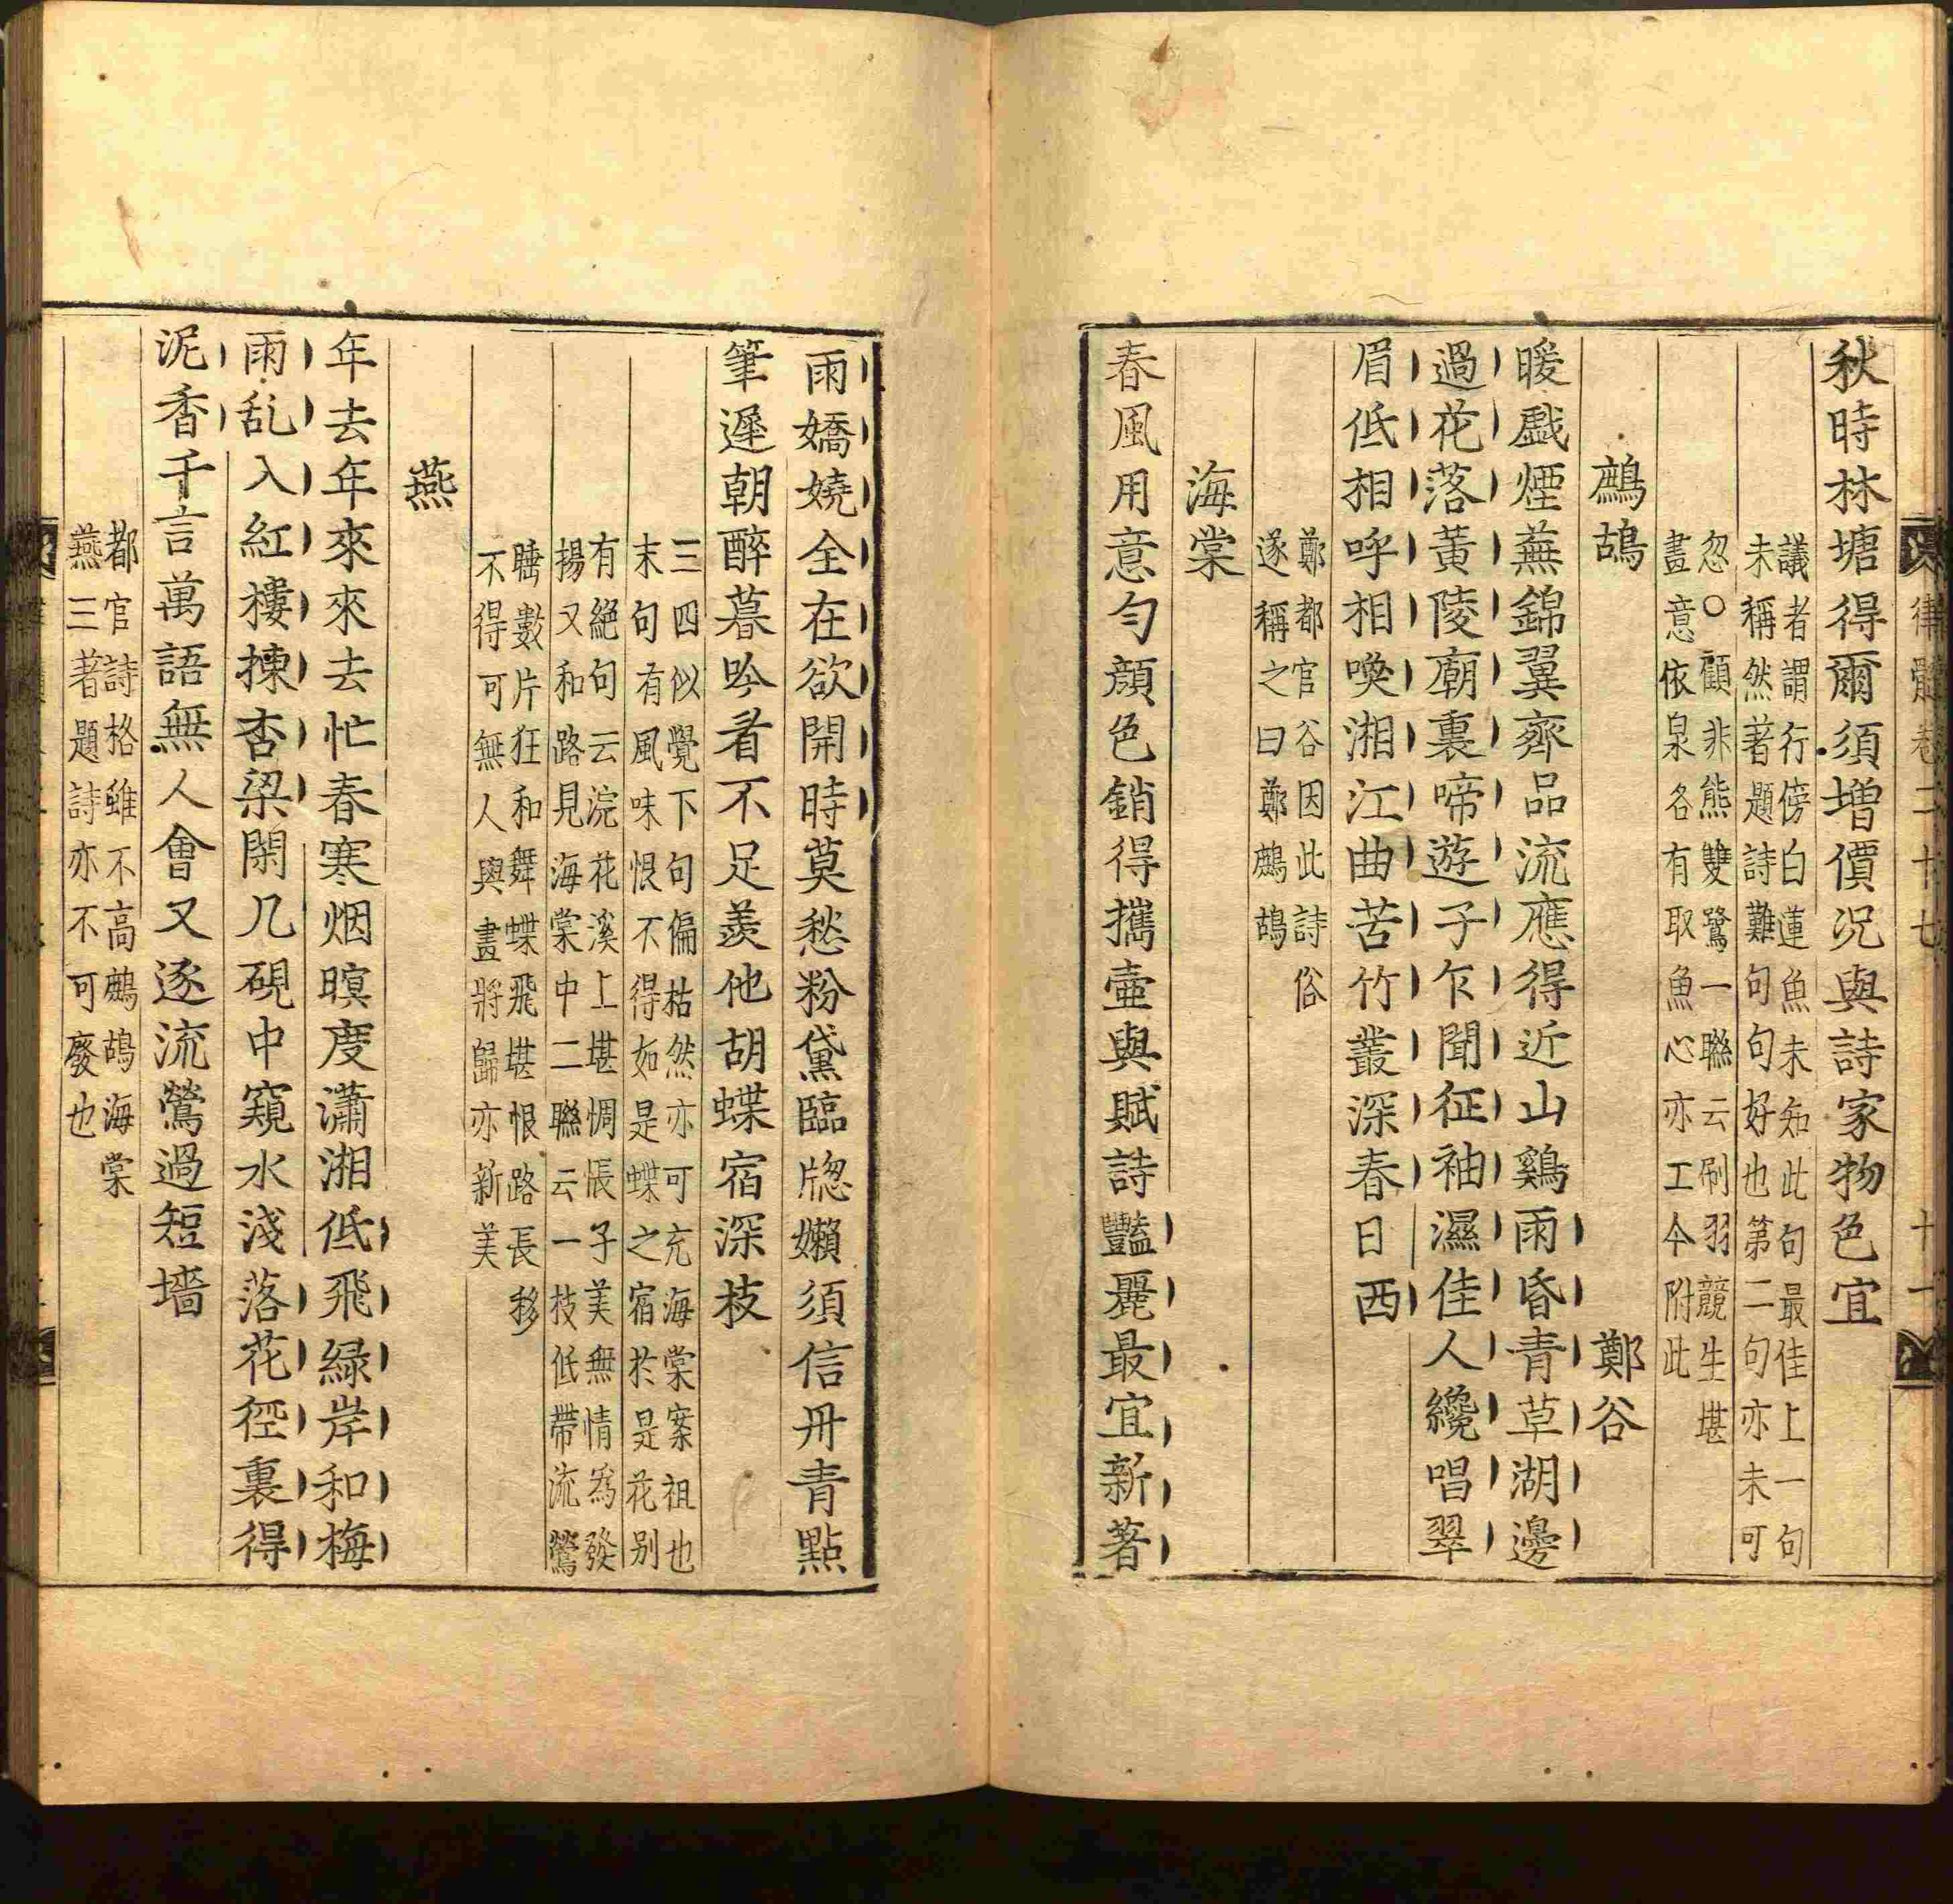 律髓卷二十七
十一
秋時林塘得爾須増價况與詩家物色宜
議者謂行傍白蓮魚未知此句最佳上一句
未稱然著題詩難句句好也第二句亦未可
忽○顧非熊雙鷺一聯云刷羽競生堪
畫意依泉各有取魚心亦工今附此
鷓鴣
鄭谷
暖戲煙蕪錦翼齊品流應得近山鷄雨昏青草湖邊
過花落黃陵廟裏啼遊子乍聞征袖濕佳人纔唱翠
眉低相呼相喚湘江曲苦竹叢深春日西
鄭都官谷因此詩俗
遂稱之曰鄭鷓鴣
海棠
春風用意勻顏色銷得攜壷與賦詩豔麗最宜新著
雨嬌嬈全在欲開時莫愁粉黛臨牎嬾須信丹青點
筆遲朝醉暮吟看不足羨他胡蝶宿深枝
三四似覺下句偏枯然亦可充海棠案祖也
末句有風味恨不得如是蝶之宿於是花别
有絕句云浣花溪上堪惆悵子美無情爲發
揚又和路見海棠中二聯云一枝低帶流鶯
睡數片狂和舞蝶飛堪恨路長移
不得可無人與畫將歸亦新美
燕
年去年來來去忙春寒烟暝度瀟湘低飛緑岸和梅
雨乱入紅樓揀杏梁閑几硯中窺水淺落花徑裏得
泥香千言萬語無人會又逐流鶯過短墻
都官詩格雖不高鷓鴣海棠
燕三著題詩亦不可廢也